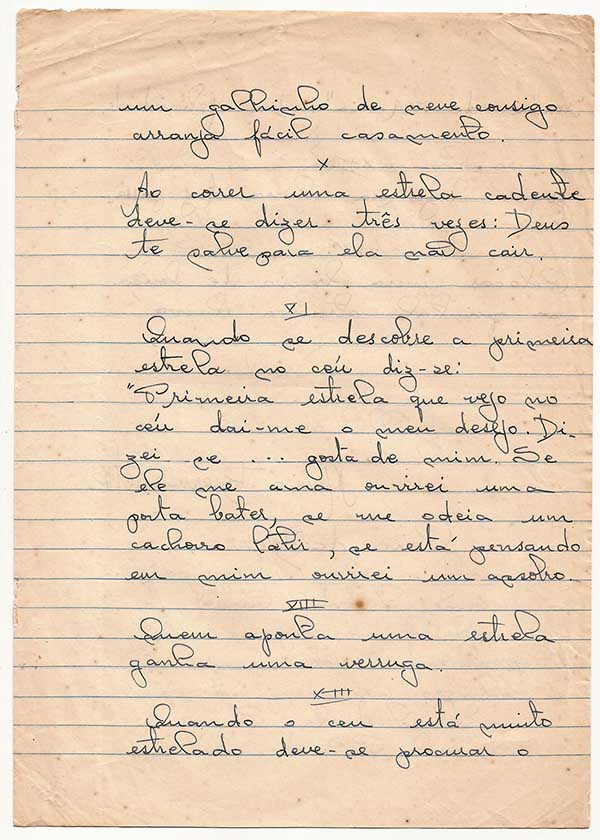 um galhinho de neve consigo
arranja fácil casamento.
X
Ao correr uma estrela cadente
deve-se dizer três vezes: Deus
te salve para ela não cair.
XI
Quando se descobre a primeira
estrela no céu diz-se:
"Primeira estrela que vejo no
céu dai-me o meu desejo. Di-
zei se ... gosta de mim. Se
ele me ama ouvirei uma
porta bater, se me odeia um
cachorro latir, se está pensando
em mim ouvirei um assobio.
XIII
Quem aponta uma estrela
ganha uma verruga.
XIII
Quando o ceu está muito
estrelado deve-se procurar o